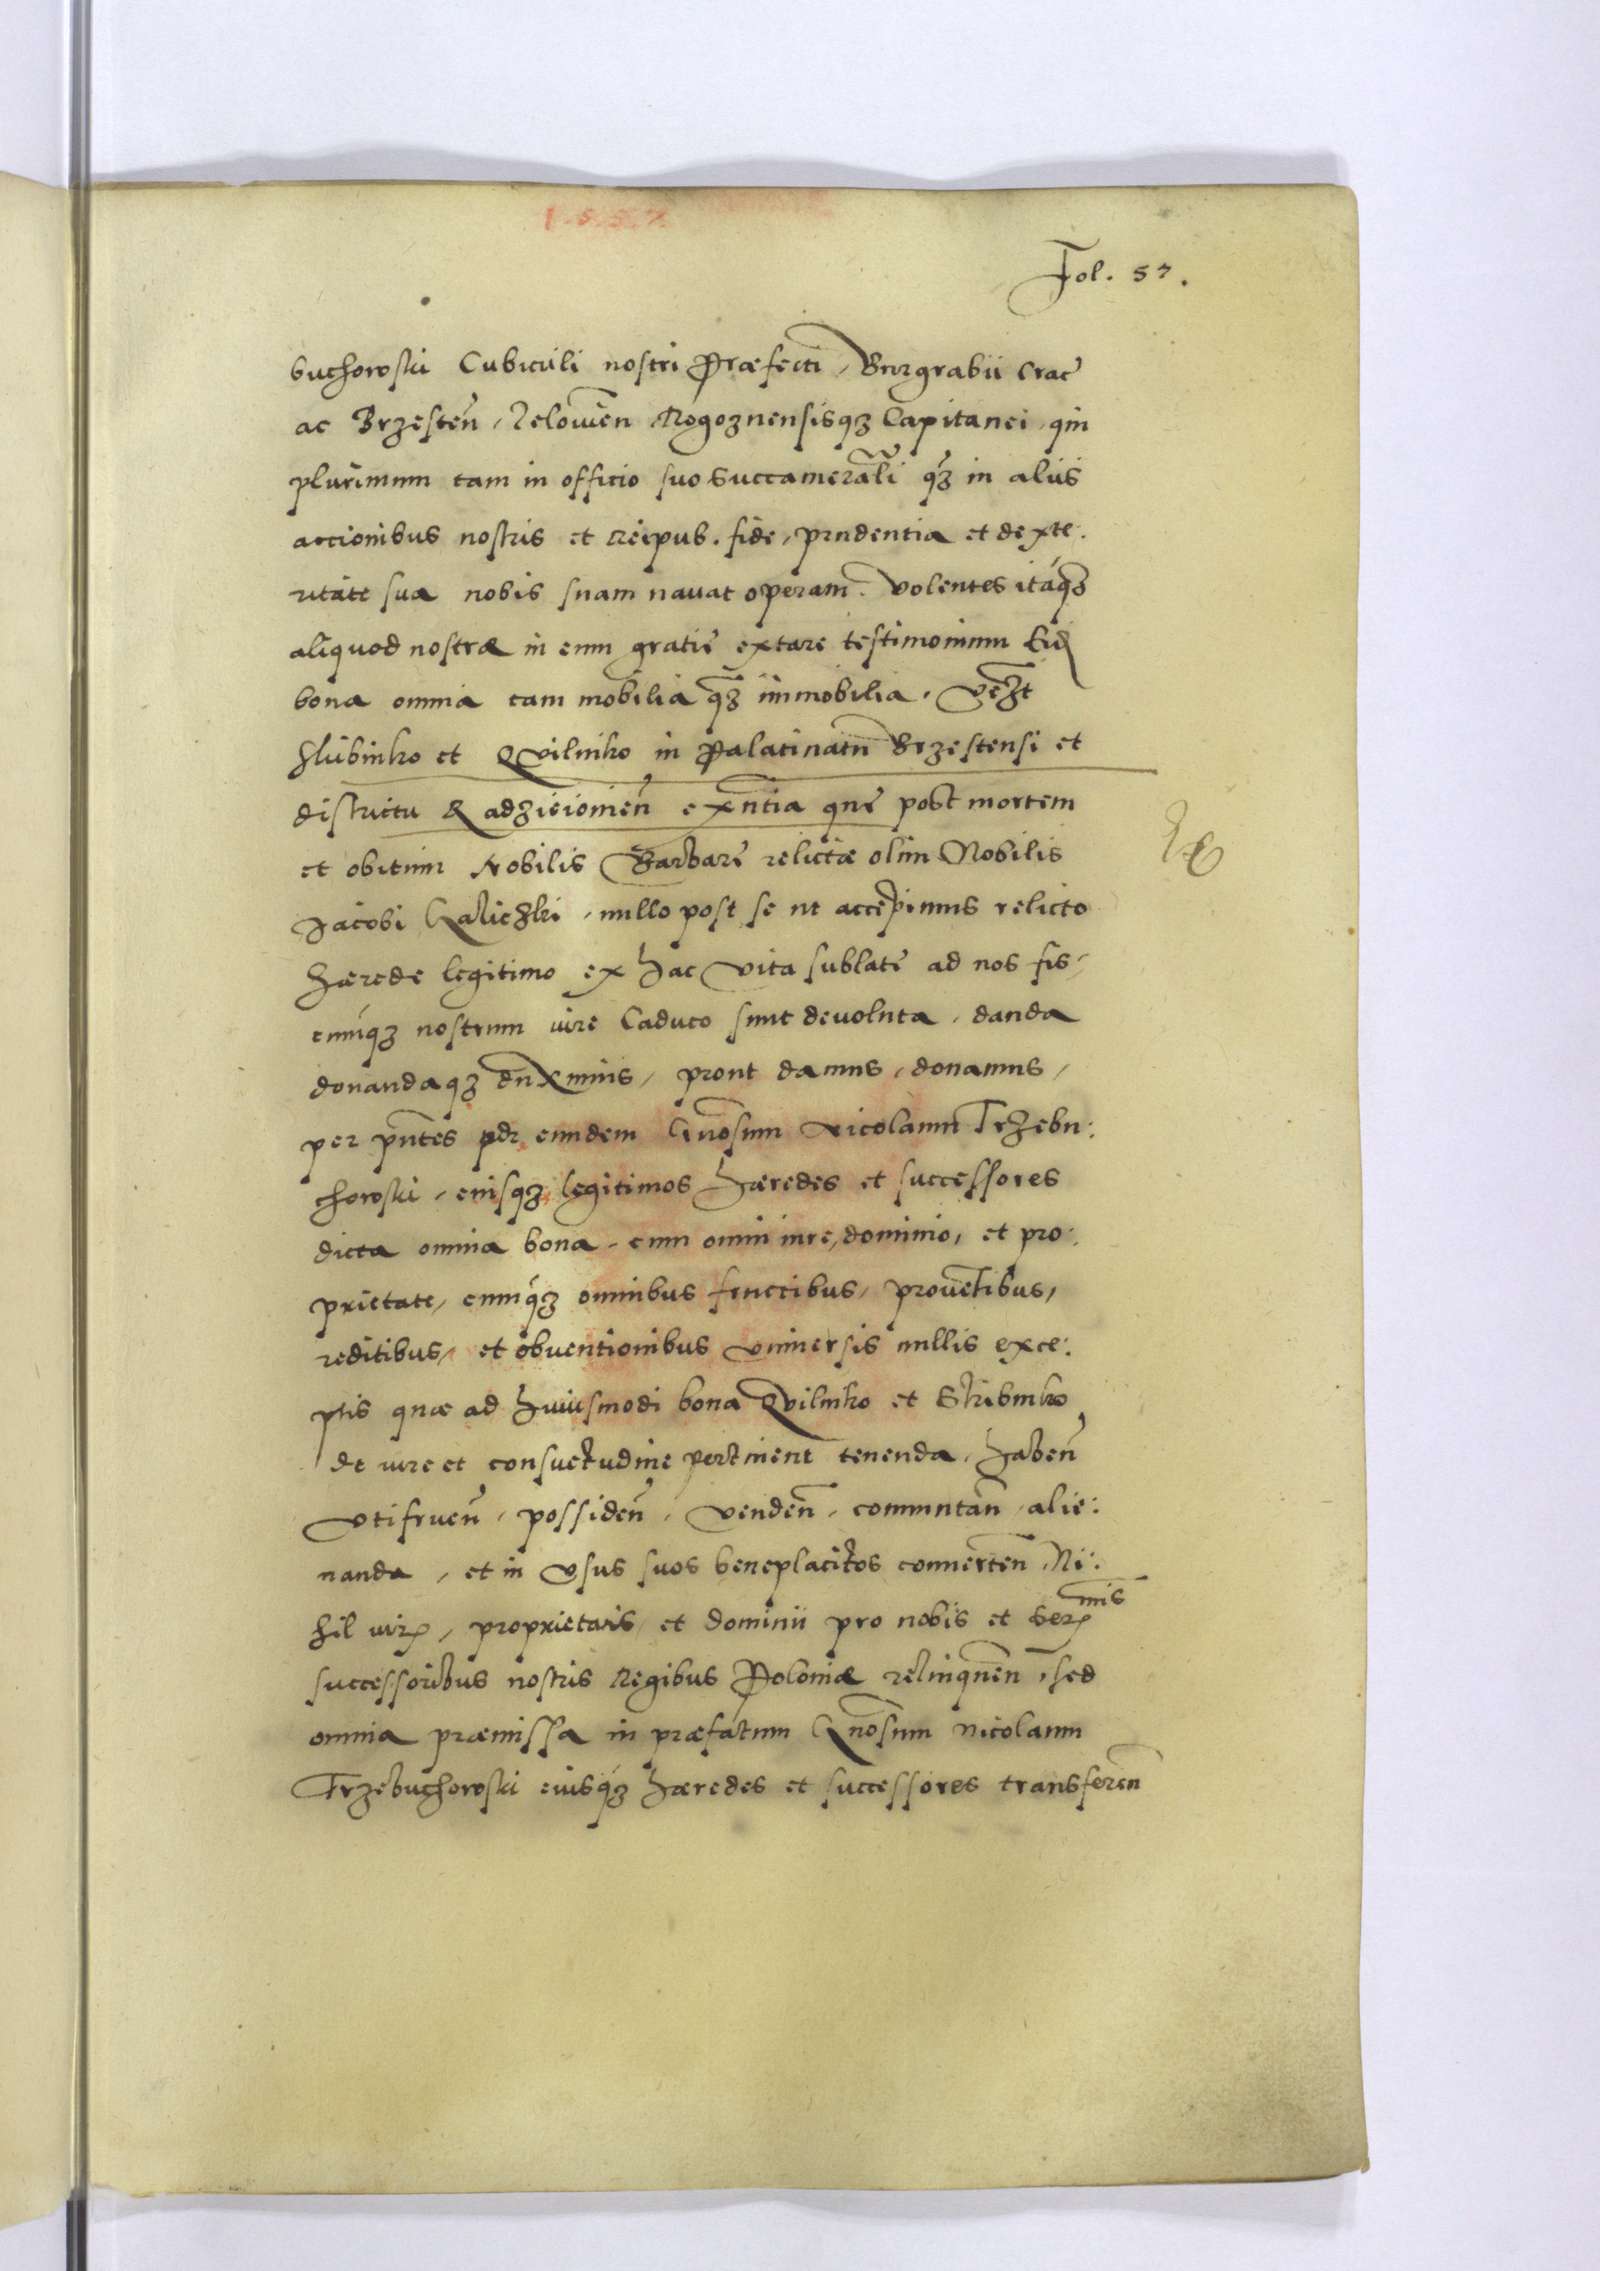 1557
Fol. 57.
buchowski Cubiculi nostri Præfecti, Burgrabii Crac̄
ac Brzesteñ, Kelowieñ Rogoznensisqʒ Capitanei, qui
plurimum tam in officio suo Succamerāli qʒ̄ in aliis
actionibus nostris et Reipub. fide, prudentia et dexte:
ritate sua nobis suam navat operam. Volentes itáqʒ
aliquod nostræ in eum gratię extare testimonium Eid
bona omnia tam mobilia qʒ̄ immobilia, Vczt
Slubinko et Qvilinko in Palatinatu Brzestensi et
districtu Radzieiouień exñtia quę post mortem
et obitum Nobilis Barbarę relictæ olim Nobilis
Jacobi Kalichzki, nullo post se ut accepimus relicto
hærede legitimo ex hac vita sublatę ad nos fis,
cumqʒ nostrum iure Caduco sunt devoluta, danda
donandaqʒ duximus, prout damus, donamus,
per p̄ntes pdr eundem Gñosum Nicolaum Trzebu:
chowski, eiusqʒ legitimos hæredes et successores
dicta omnia bona, cum omni iure, dominio, et pro:
prietate, cumqʒ omnibus fructibus, proventibus,
reditibus, et obventionibus universis nullis exce:
ptis quæ ad huiusmodi bona Qvilinko et Skibinko
de iure et consuetudine pertinent tenenda, habeñ
Utifrueñ, possideñ, vendeñ, commutañ, alie:
nanda, et in Usus suos beneplacitos converteñ, Ni:
hil iuris, proprietatis et dominii pro nobis et Ser mis
successoribus nostris Regibus Poloniæ relinqueñ, sed
omnia præmissa in præfatum Gñosum Nicolaum
Trzebuchowski eiusqʒ hæredes et successores transfereñ